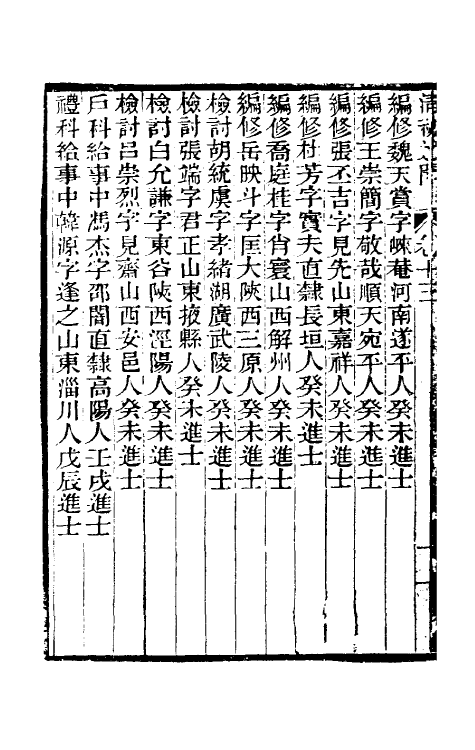 卷十三
編修魏天賞字崍菴河南遂平人癸未進士
編修王崇簡字敬哉順天宛平人癸未進士
編修張丕吉字見先山東嘉祥人癸未進士
編修杜芳字寶夫直隸長垣人癸未進士
編修喬庭桂字肖寰山西解州人癸未進士
編修岳映斗字匡大陜西三原人癸未進士
檢討胡統虞字孝緒湖廣武陵人癸未進士
檢討張端字君正山東掖縣人癸未進士
檢討白允謙字東谷陜西涇陽人癸未進士
檢討呂崇烈字見齋山西安邑人癸未進士
戶科給事中馮杰字邵闇直隸高陽人壬戌進士
禮科給事中韓源字逢之山東淄川人戊辰進士